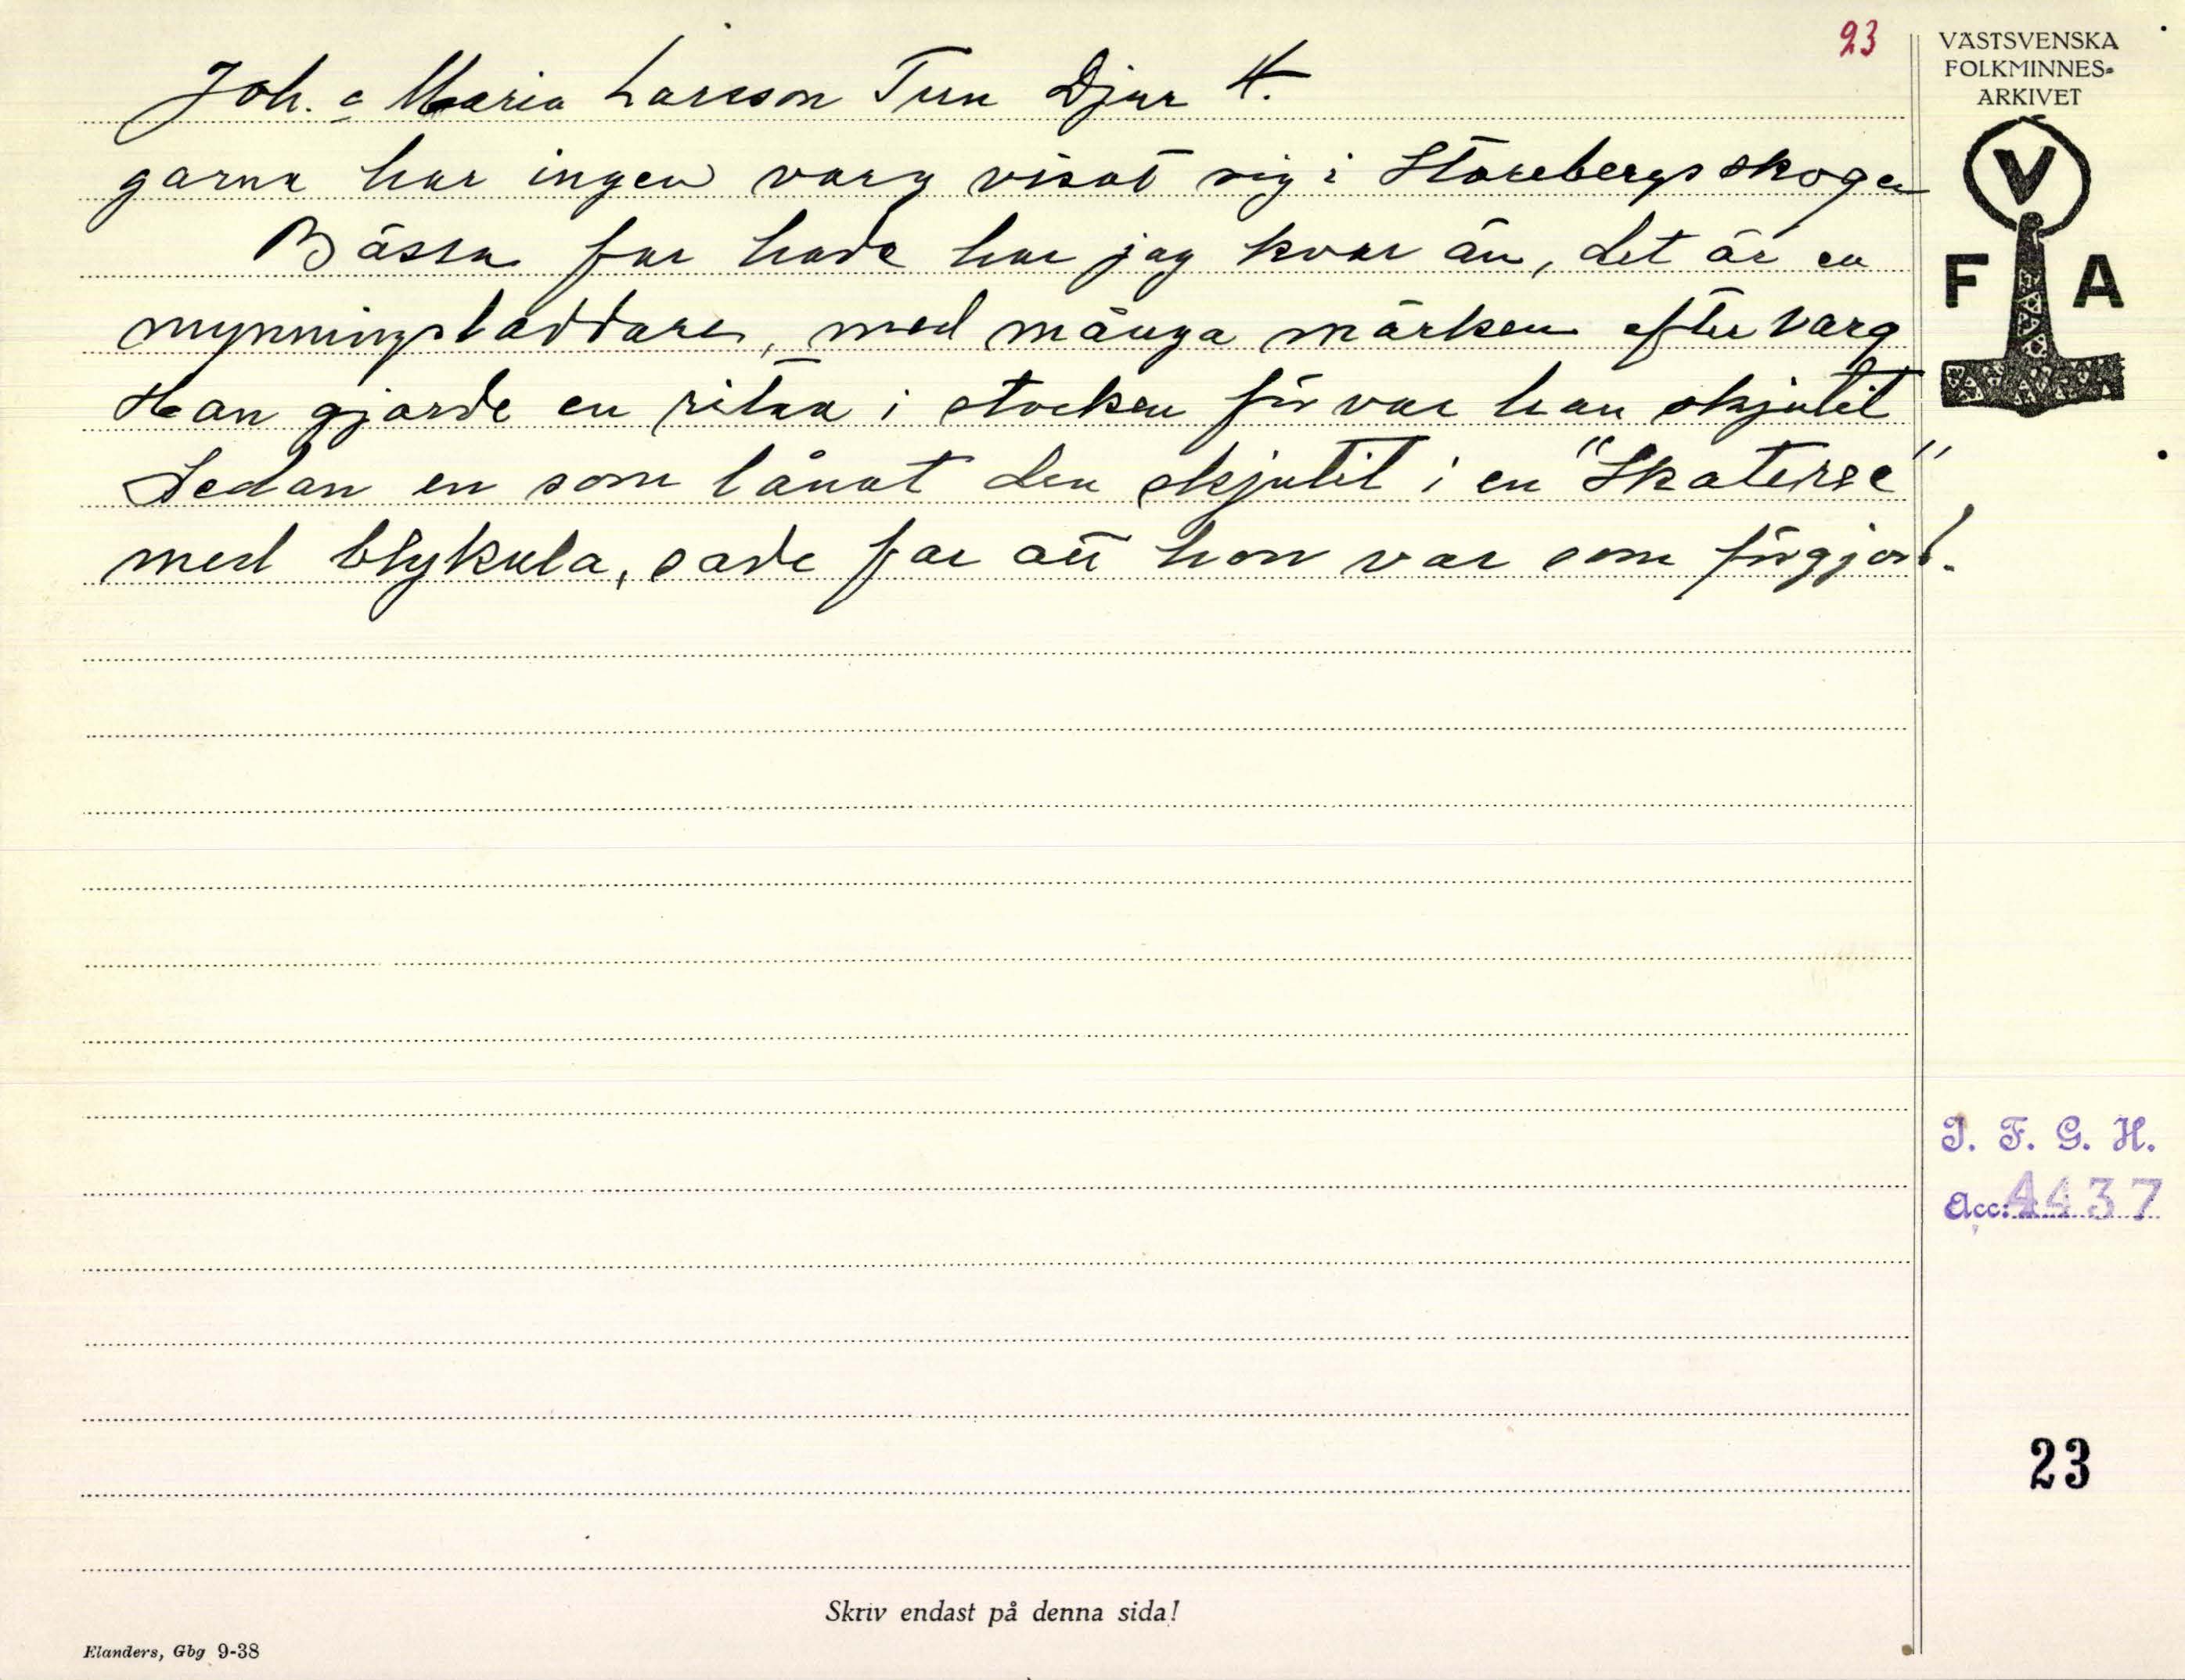 23
Joh. o Maria Larsson Tun Djur H.
garna har ingen varg visat sig i Storebergs skogen
Bössa far hade har jag kvar än, det är en
mynningsladdare, med många märken efter varg
Han gjorde en ritsa i stocken för var han skjutit
Sedan en som lånat den skjutit i en "Skaterse"
med blykula, sade far att hon var som förgjord.
VÄSTSVENSKA
FOLKMINNES-
ARKIVET
V
F A
I. F. G. H.
Acc: 4437
23
Skriv endast på denna sida!
Elanders, Gbg 9-38